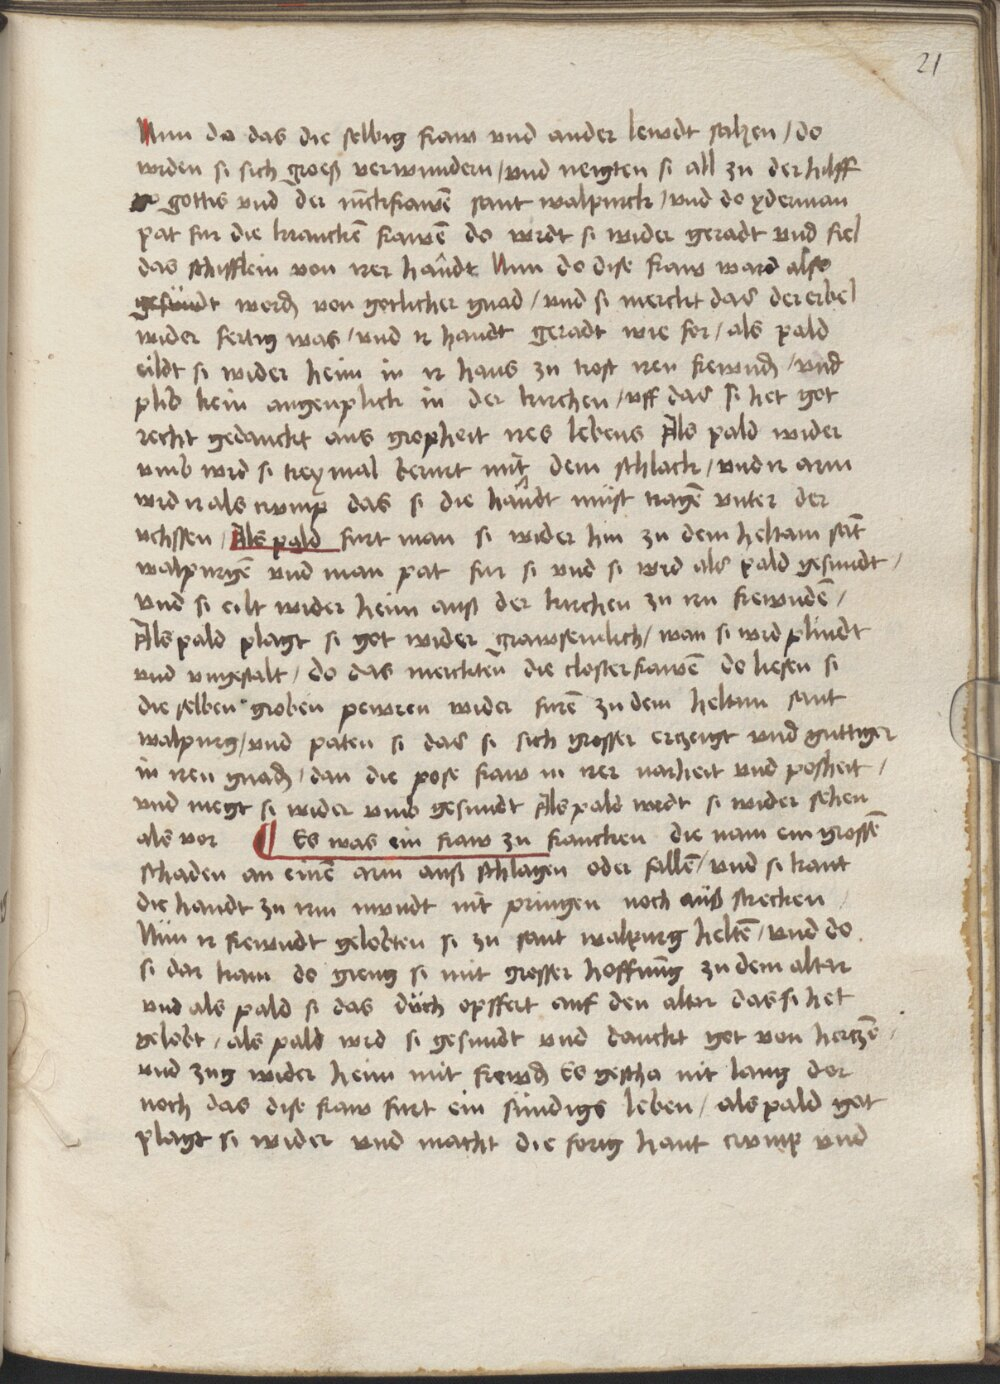 21
Nun do das die selbig fraw vnd ander lewdt sahen / do
wrden si sich groeß verwundern / vnd neigten si all zu der hilff
gottis vnd der iūckfrawē sant walpurck / vnd do yderman
pat fur die kranckē frawē do wrdt si wider geradt vnd fiel
das schifflein von irer handt Nun do dise fraw ward also
gesundt wordē von gotlicher gnad / vnd si merckt das der erbel
wider fertig was / vnd ir handt geradt wie for / als pald
eildt si wider heim in ir haus zu trost iren frewndē / vnd
plib kein augenplick in der kirchen / vff das si het got
recht gedanckt aus gropheit ires lebens Als pald wider
vmb wrd si trey mal berurt mit dem schlack / vnd ir arm
wrd ir als crump das si die handt must tragē vnter der
vchssen / Als pald furt man si wider hin zu dem heltam sāt
walpurgē vnd man pat fur si vnd si wrd als pald gesundt /
vnd si eilt wider heim auß der kirchen zu irn frewndē /
Als pald plagt si got wider grawsemlich / wan si wrd plindt
vnd vngestalt / do das merckten die closterfrawē do liesen si
die selben groben pewren wider furē zu dem heltum sant
walpurg / vnd paten si das si sich grosser erzeigt vnd guttiger
in iren gnadē / dan die pose fraw in irer narheit vnd posheit /
vnd megt si wider vmb gesundt Als pald wrdt si wider sehen
als vor ¶ Es was ein fraw zu francken die nam ein grossē
schaden an einē arm auß schlagen oder fallē / vnd si kant
die handt zu irm mundt nit pringen noch auß strecken /
Nun ir frewndt gelobten si zu sant walpurg heltē / vnd do
si dar kam do gieng si mit grosser hoffnūg zu dem altar
vnd als pald si das duch opffert auf den altar das si het
gelobt / als pald wrd si gesundt vnd danckt got von hertzē /
vnd zug wider heim mit frewdē Es gescha nit lang dor
noch das dise fraw furt ein sundigs leben / als pald got
plagt si wider vnd macht die forig hant crump vnd